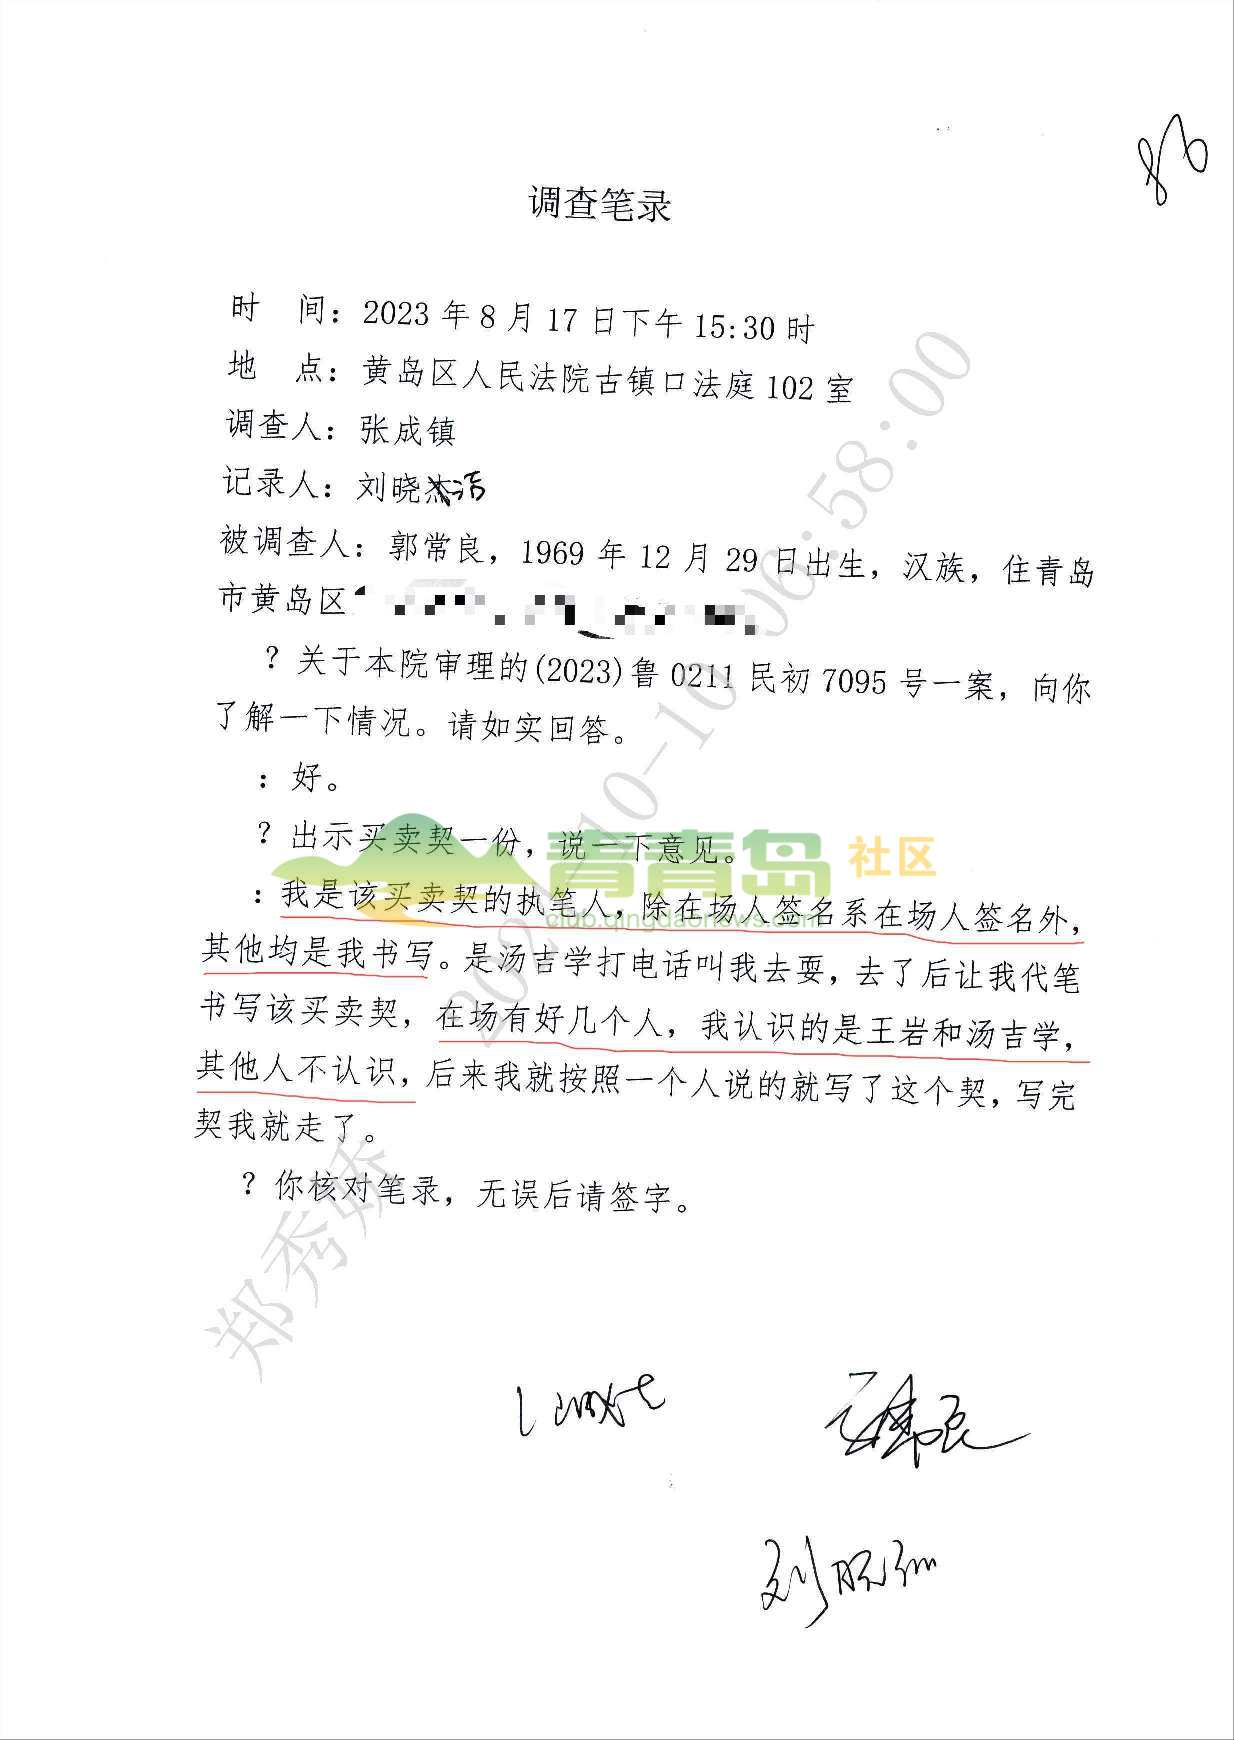 86
调查笔录
时　间：2023年8月17日下午15:30时
地　点：黄岛区人民法院古镇口法庭102室
调查人：张成镇
记录人：刘晓杰洁
被调查人：郭常良，1969年12月29日出生，汉族，住青岛
市黄岛区
？关于本院审理的(2023)鲁0211民初7095号一案，向你
了解一下情况。请如实回答。
：好。
？出示买卖契一份，说一下意见。
青青岛 社区
club.qingdaonews.com
：我是该买卖契的执笔人，除在场人签名系在场人签名外，
其他均是我书写。是汤吉学打电话叫我去耍，去了后让我代笔
书写该买卖契，在场有好几个人，我认识的是王岩和汤吉学，
其他人不认识，后来我就按照一个人说的就写了这个契，写完
契我就走了。
？你核对笔录，无误后请签字。
郑秀娇
06:58:00